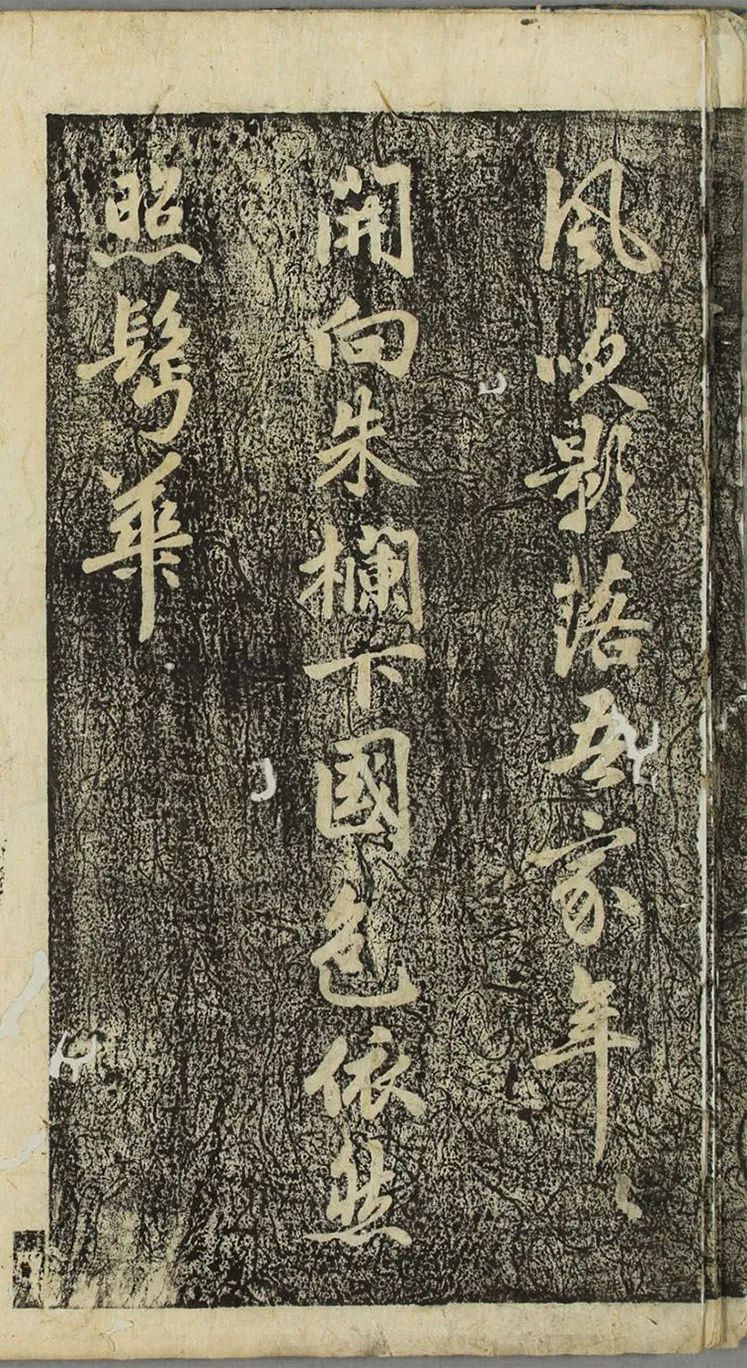 風喚影落吾家年〻
開向朱欄下國色依然
照鬢華